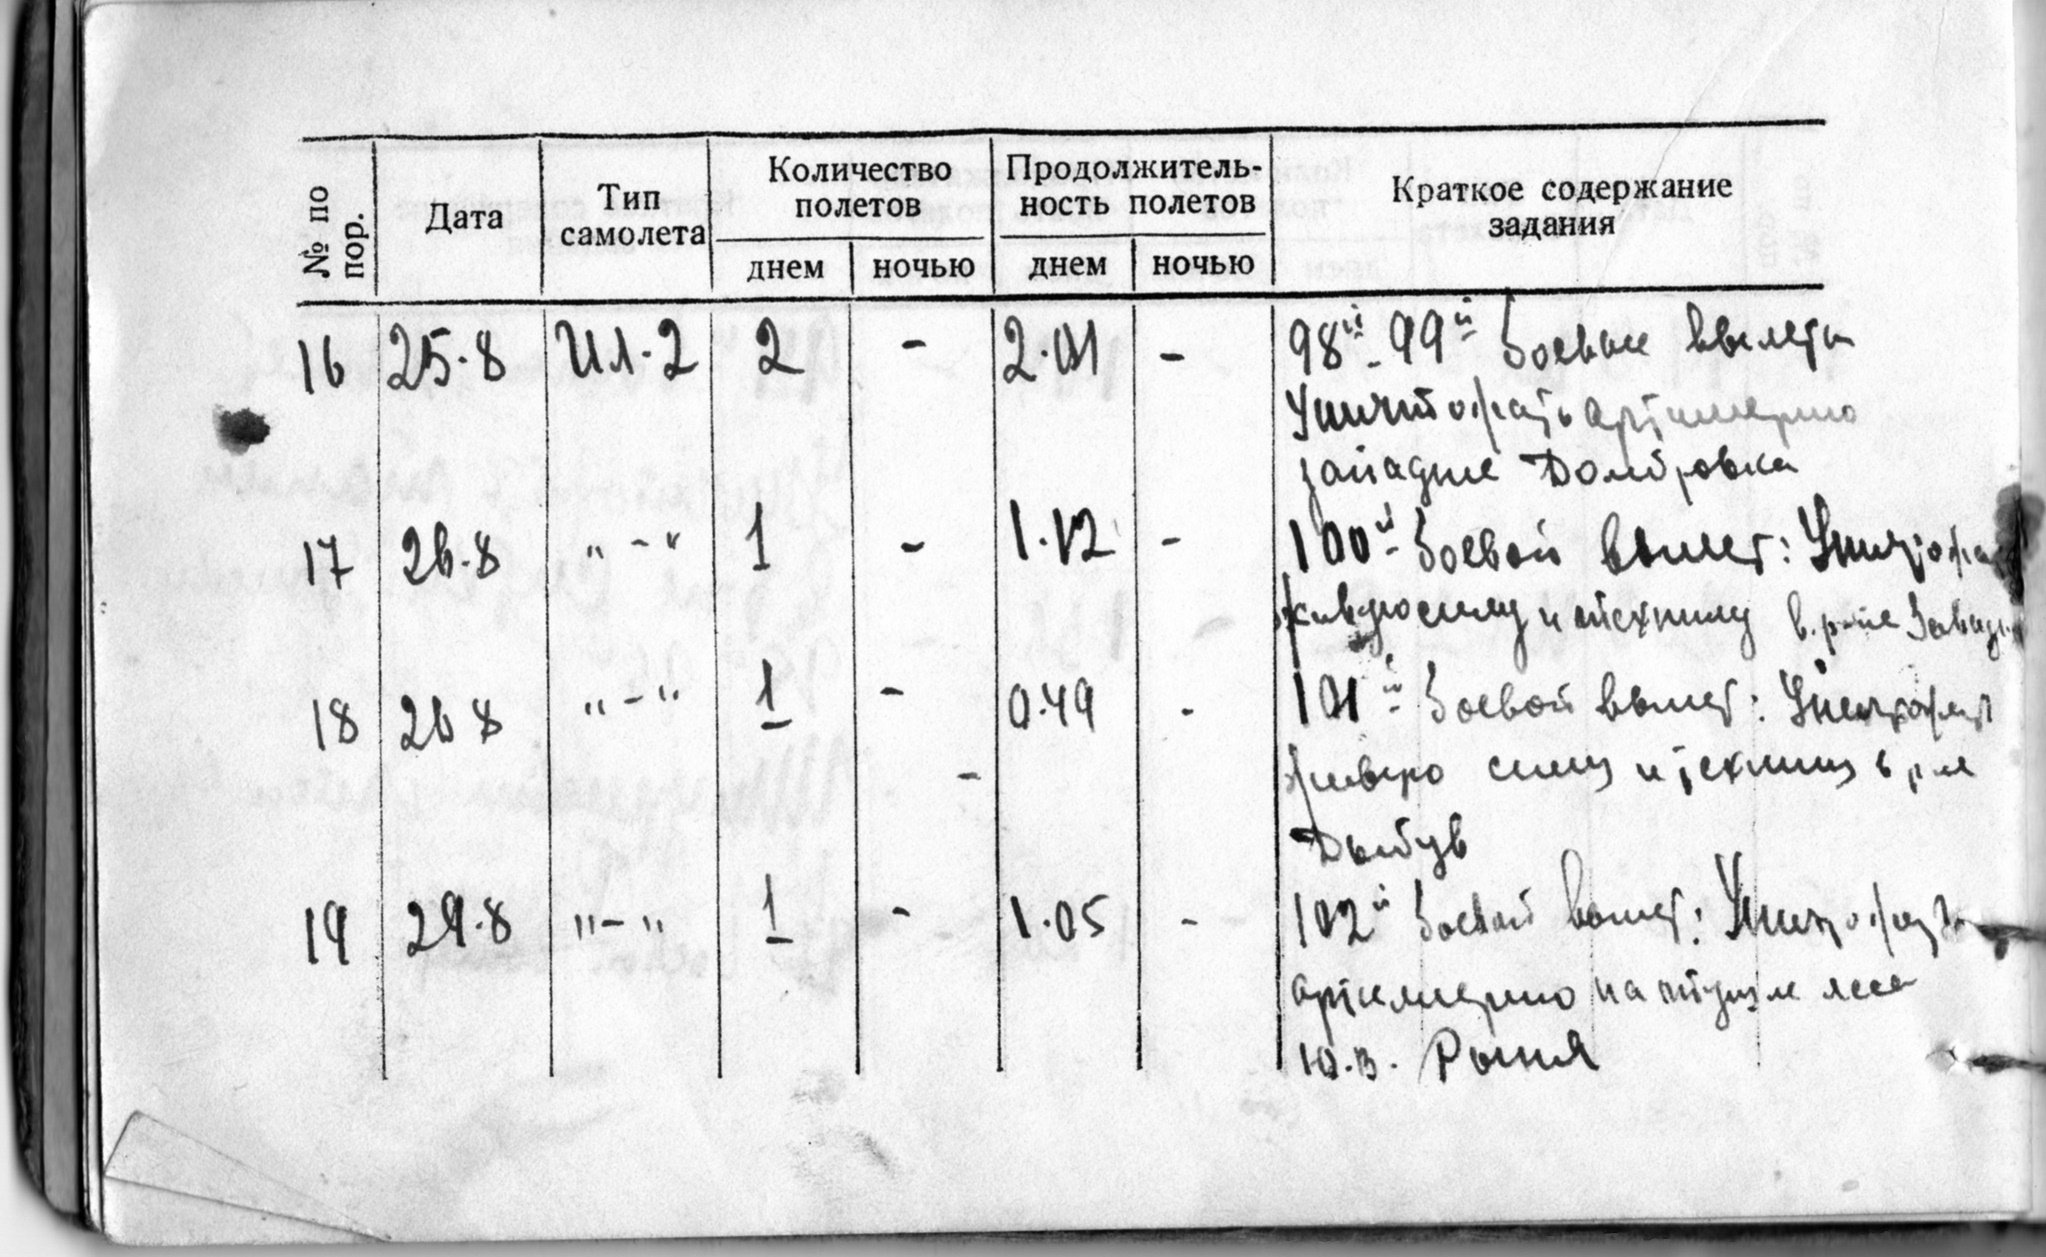 № по пор. Дата Тип самолета Количество полетов Продолжительность полетов Краткое содержание задания
днем ночью днем ночью
16 25.8 Ил-2 2 - 2.01 - 98й-99й Боевые вылеты
Уничтожать артиллерию
западнее Домбровка
17 26.8 "-" 1 - 1.12 - 100й Боевой вылет:
живую силу и технику в р-не
18 26 8 "-" 1 - 0.49 - 101й Боевой вылет: Уничтожать
живую силу и технику в р-не
-
Дыбув
19 29.8 "-" 1 - 1.05 - 102й Боевой вылет: Уничтожать
артиллерию на опушке леса
Ю.В. Рыня